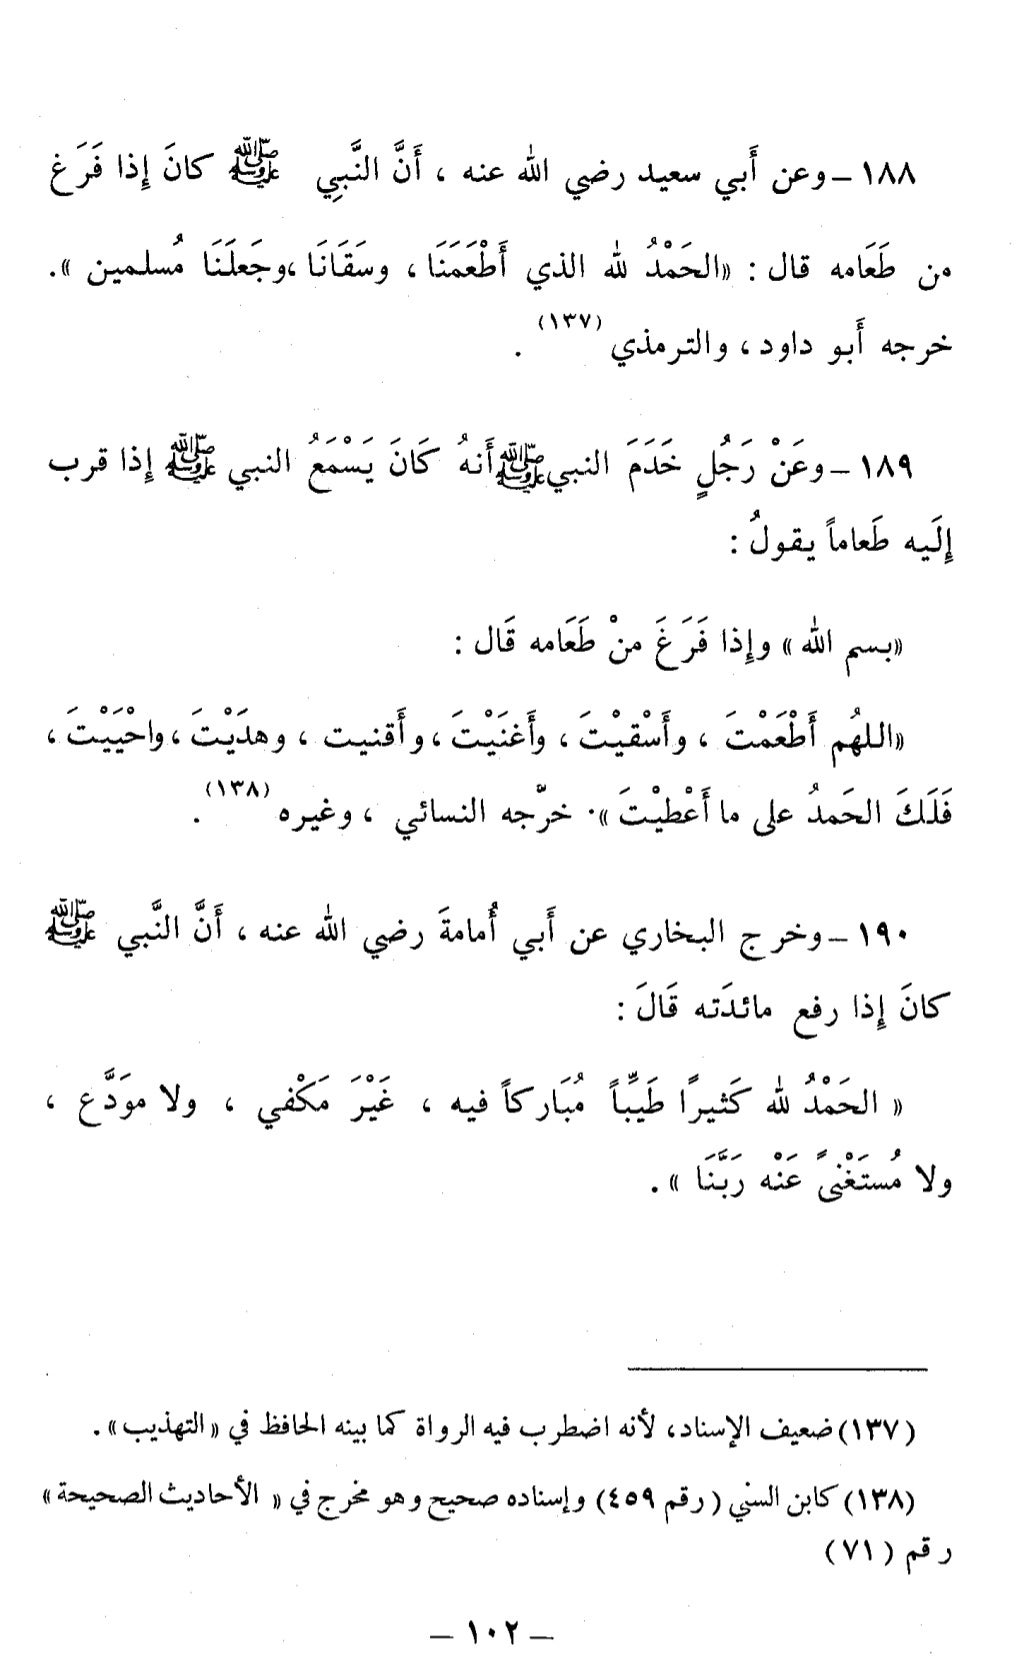 ١٨٨ – وعن أَبي سعيد رضي الله عنه ، أَنَّ النَّبِي ﷺ كانَ إِذا فَرَغ
من طَعَامه قال : «الحَمْدُ لله الذي أَطْعَمَنَا ، وسَقَانَا ،وجَعلَنَا مُسلمين ».
خرجه أَبو داود ، والترمذي (١٣٧) .
١٨٩ – وعَنْ رَجُلٍ خَدَمَ النبي ﷺ أَنهُ كَانَ يَسْمَعُ النبي ﷺ إِذا قرب
إِلَيه طَعاماً يقولُ :
«بسم الله » وإِذا فَرَغَ منْ طَعَامه قَال :
«اللهُم أَطْعَمْتَ ، وأَسْقيْتَ ، وأَغنَيْتَ ، وأَقنيت ، وهدَيْتَ ، واحْيَيْتَ ،
فَلَكَ الحَمدُ على ما أَعْطيْتَ ». خرّجه النسائي ، وغيره (١٣٨) .
١٩٠ – وخرج البخاري عن أَبي أُمامةَ رضي الله عنه ، أَنَّ النَّبي ﷺ
كانَ إِذا رفع مائدَته قَالَ :
« الحَمْدُ لله كَثيرًا طَيِّباً مُبَاركاً فيه ، غَيْرَ مَكْفي ، ولا موَدَّع ،
ولا مُستَغْنىً عَنْه رَبَّنَا ».
(١٣٧) ضعيف الإسناد، لأنه اضطرب فيه الرواة كما بينه الحافظ في «التهذيب».
(١٣٨) كابن السني ( رقم ٤٥٩) وإسناده صحيح وهو مخرج في « الأحاديث الصحيحة »
رقم (٧١)
– ١٠٢ –